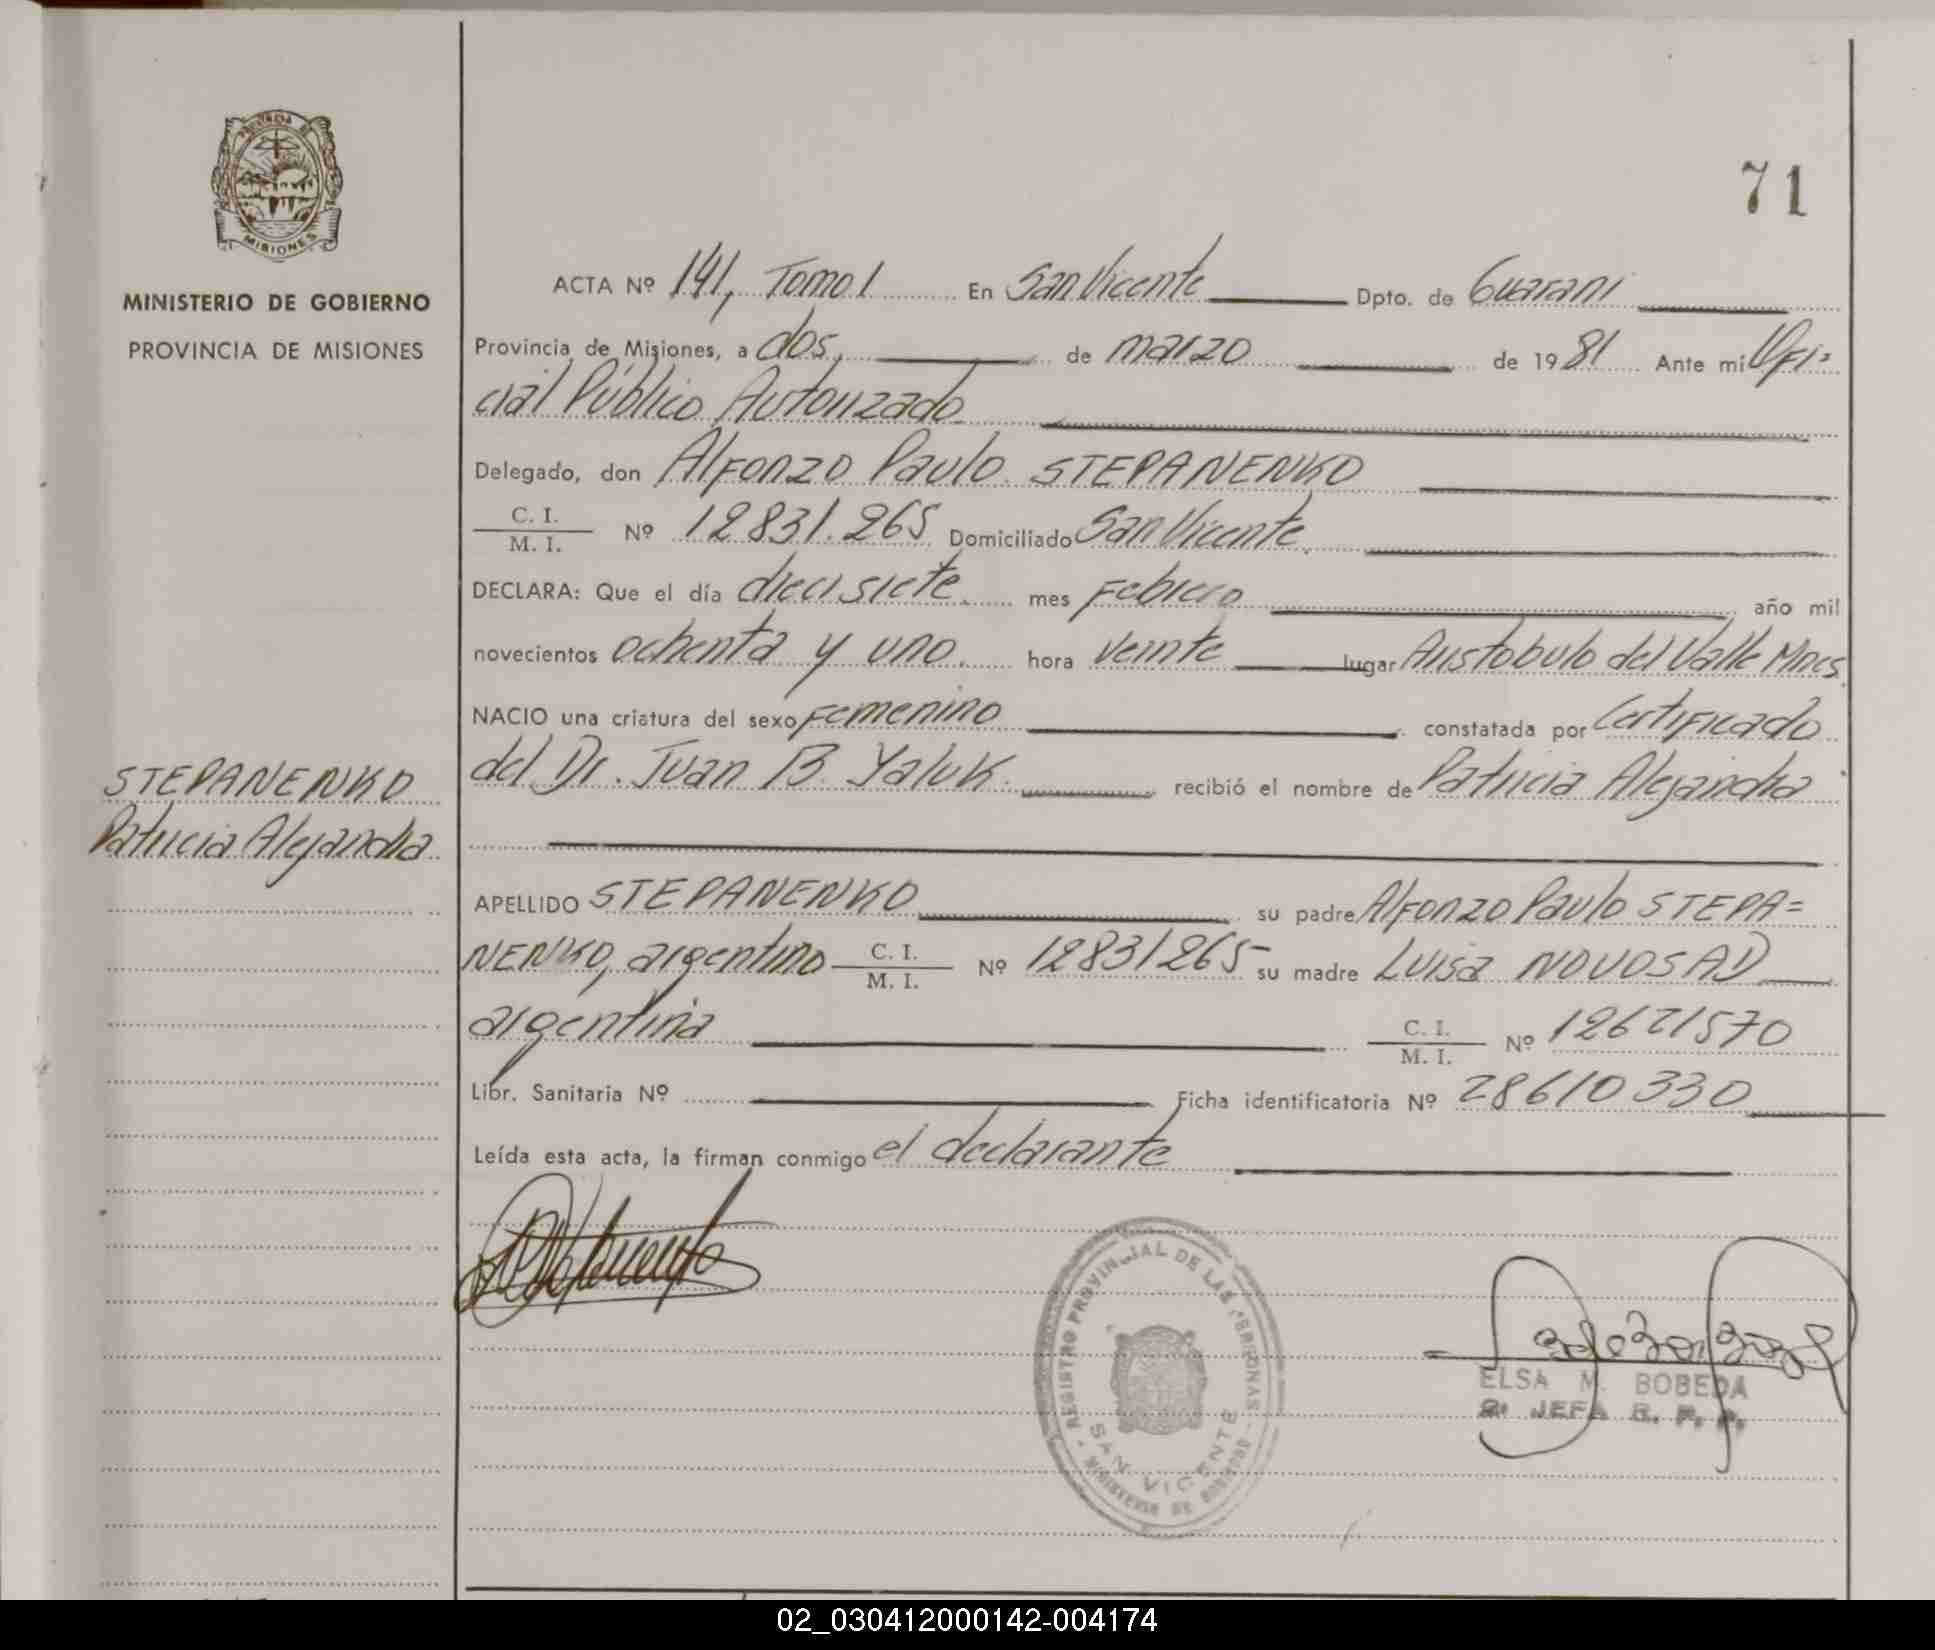 71
PROVINCIA DE
MISIONES
MINISTERIO DE GOBIERNO
PROVINCIA DE MISIONES
ACTA Nº 141, Tomo I En San Vicente Dpto. de Guarani
Provincia de Misiones, a dos, de marzo de 1981 Ante mí Ofi=
cial Público Autorizado
Delegado, don Alfonzo Paulo STEPANENKO
C. I.
M. I. Nº 12831.265 Domiciliado San Vicente
DECLARA: Que el día diecisiete mes Febrero año mil
novecientos ochenta y uno hora veinte lugar Aristobulo del Valle Mnes.
NACIO una criatura del sexo Femenino constatada por Certificado
del Dr. Juan B. Yaluk recibió el nombre de Patricia Alejandra
STEPANENKO
Patricia Alejandra
APELLIDO STEPANENKO su padre Alfonzo Paulo STEPA=
NENKO, argentino C. I. M. I. Nº 12831265 su madre Luisa NOVOSAD
argentina C. I. M. I. Nº 12621570
Libr. Sanitaria Nº Ficha identificatoria Nº 28610330
Leída esta acta, la firman conmigo el declarante
REGISTRO PROVINCIAL DE LAS PERSONAS
SAN VICENTE
MINISTERIO DE GOBIERNO
ELSA M. BOBEDA
2º JEFA R. P. P.
02_030412000142-004174